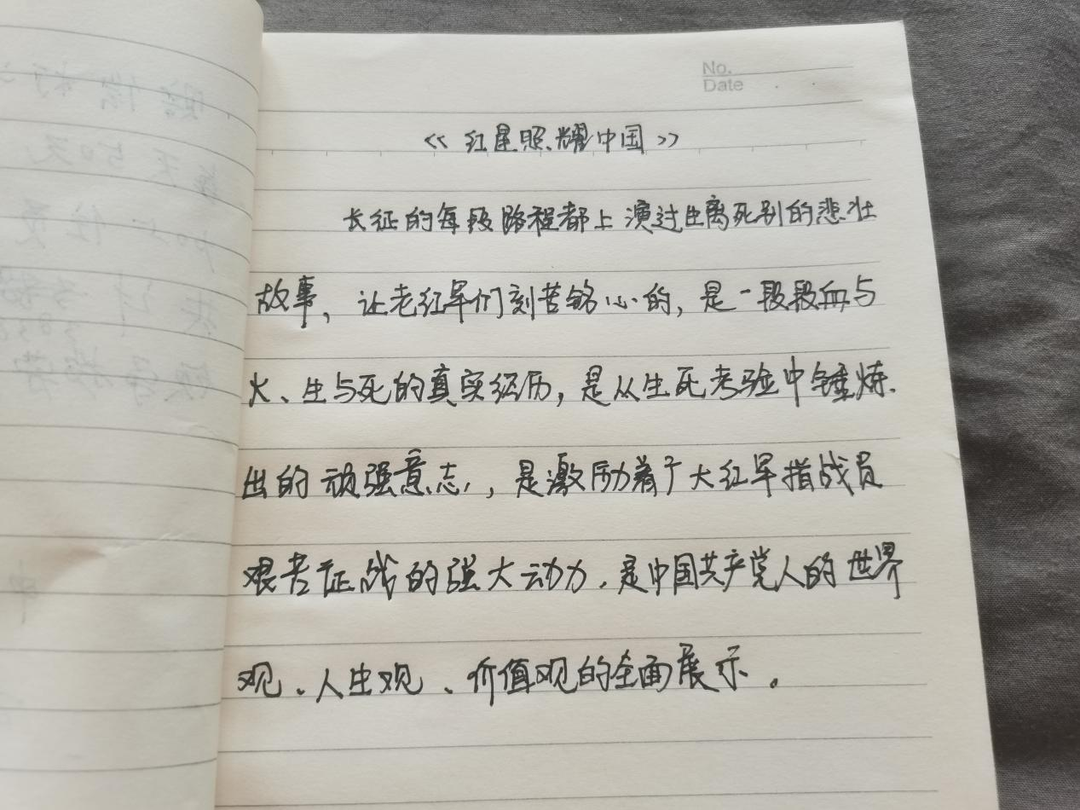 No.
Date
《红星照耀中国》
长征的每段路程都上演过生离死别的悲壮
故事，让老红军们刻苦铭心的，是一段段血与
火、生与死的真实经历，是从生死考验中锤炼
出的顽强意志，是激励着广大红军指战员
艰苦征战的强大动力，是中国共产党人的世界
观、人生观、价值观的全面展示。